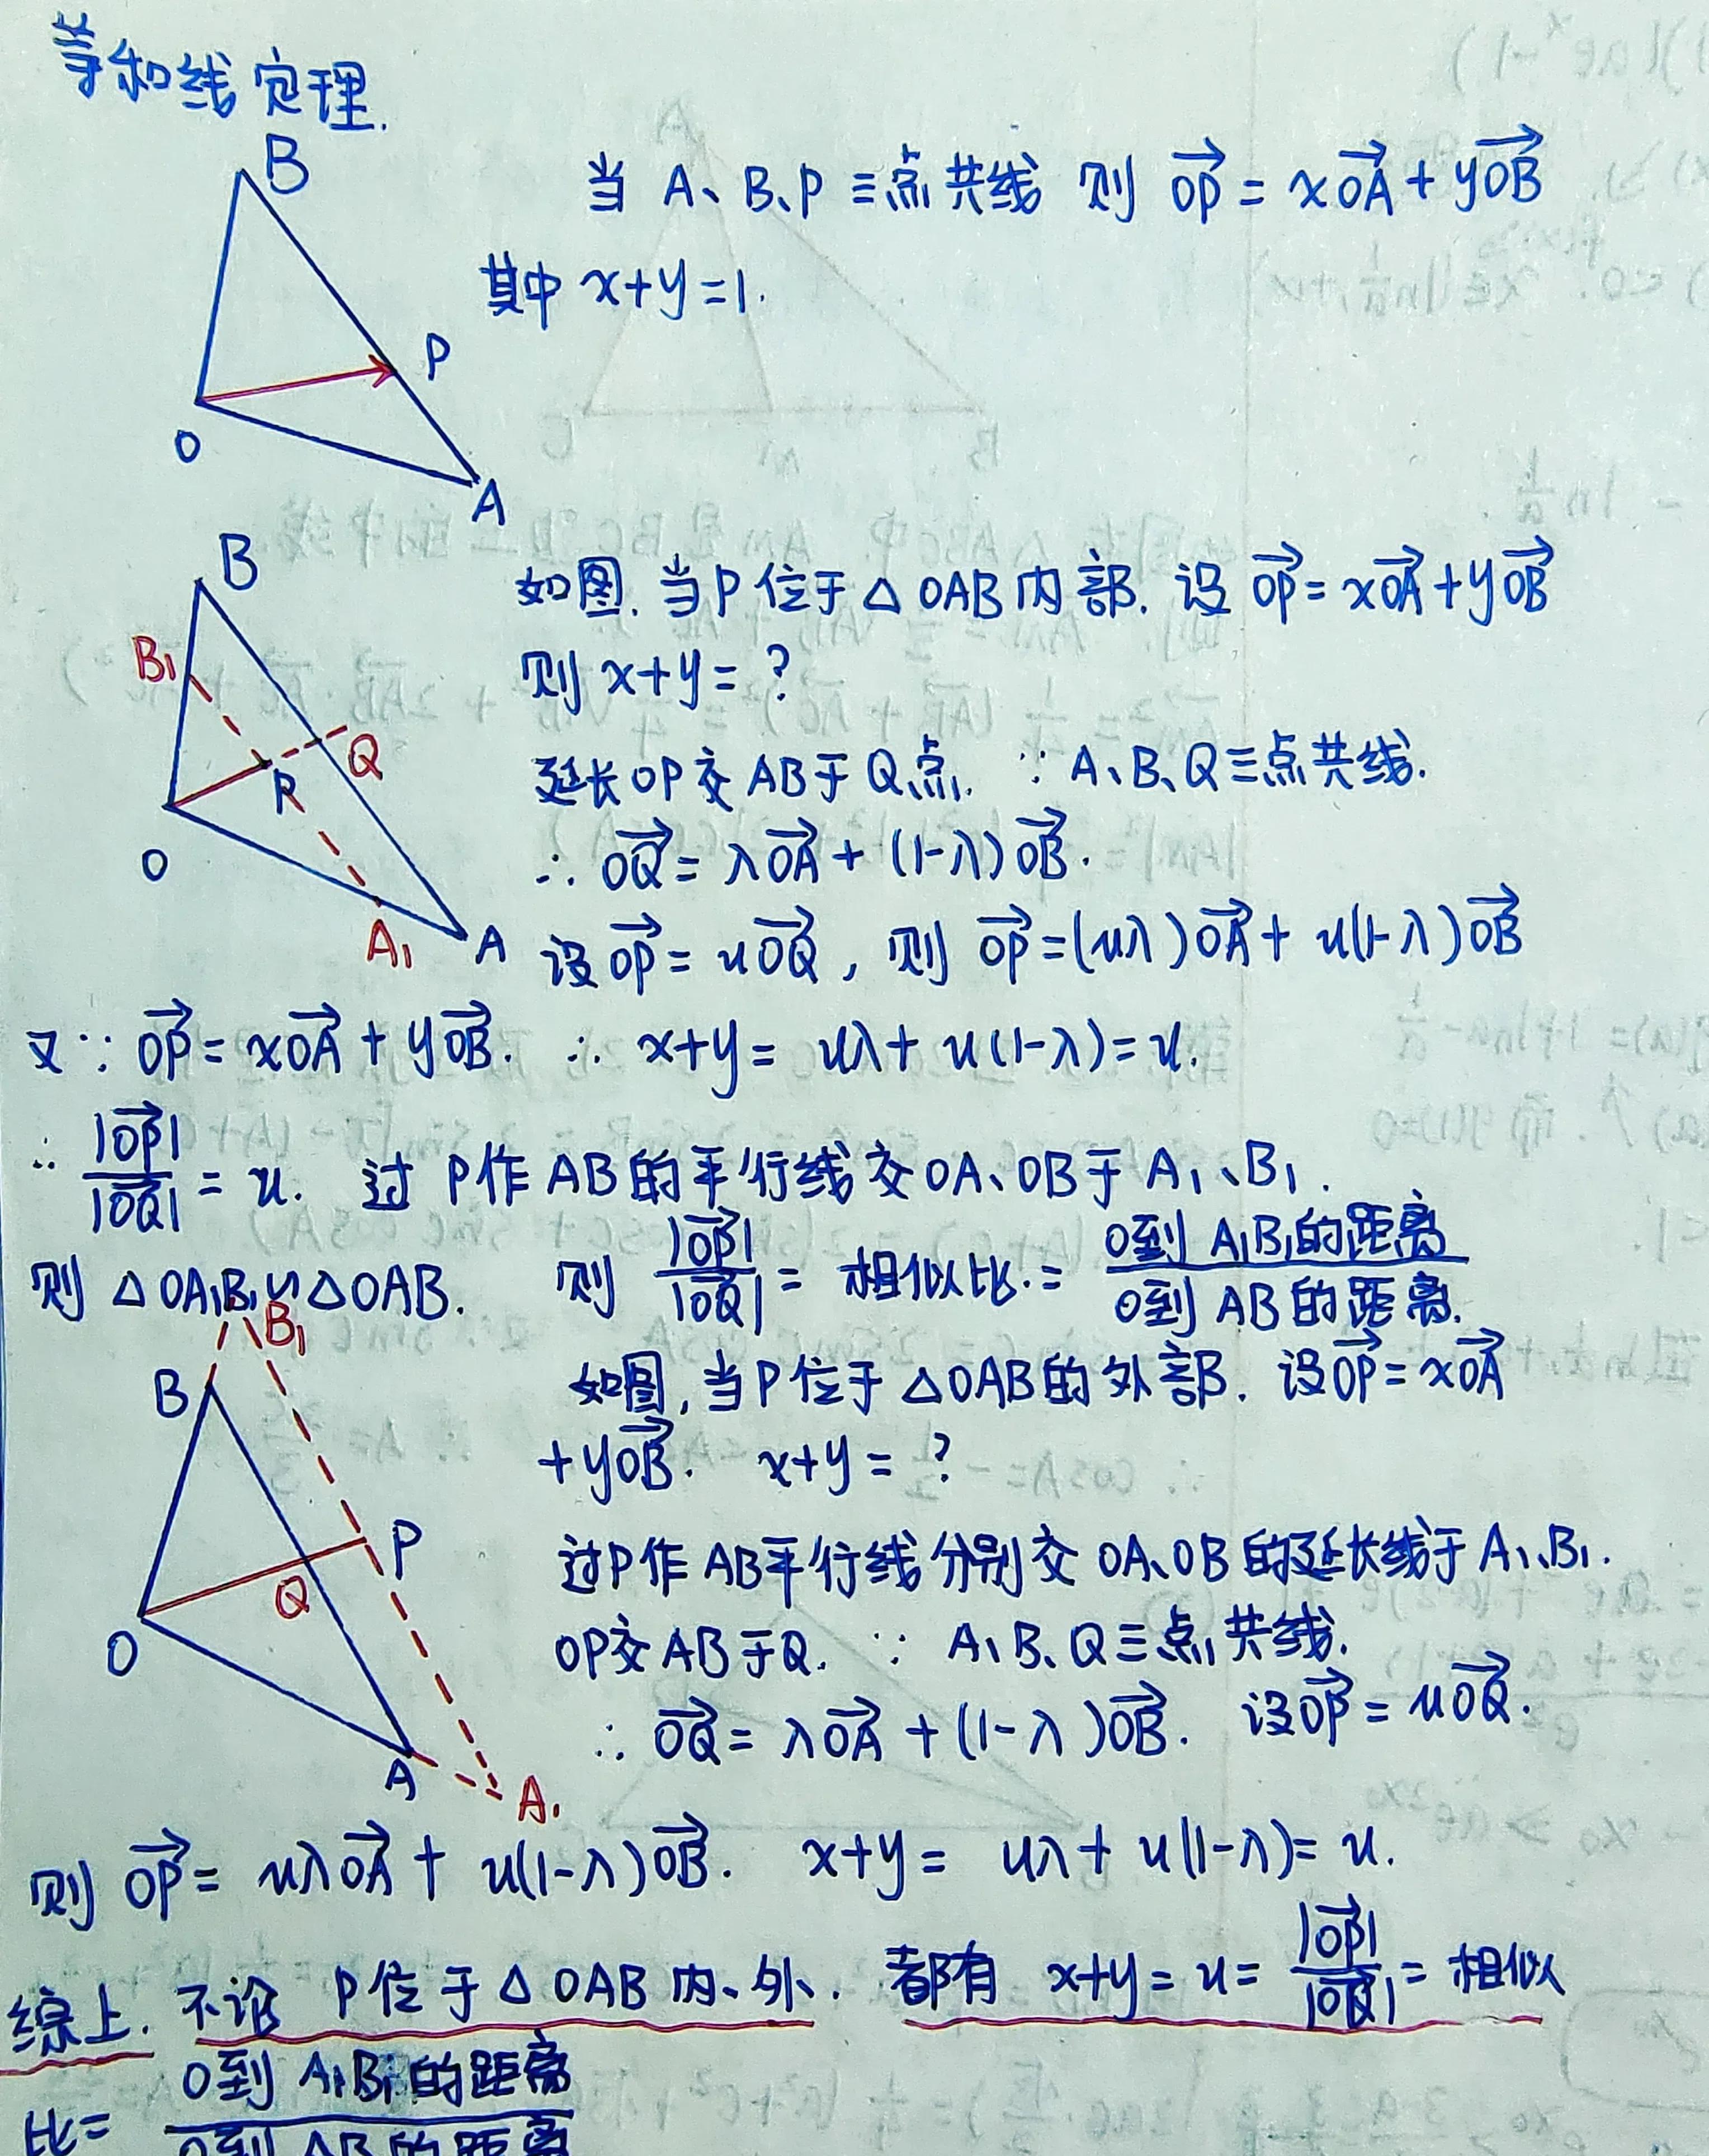 等和线定理.
B
当 A、B、P 三点共线 则 $\overrightarrow{OP}=x\overrightarrow{OA}+y\overrightarrow{OB}$
其中 x+y=1.
P
O
A
B
如图. 当P位于△OAB内部. 设 $\overrightarrow{OP}=x\overrightarrow{OA}+y\overrightarrow{OB}$
B₁
则 x+y=?
Q
延长OP交AB于Q点. ∵ A、B、Q三点共线.
P
O
∴ $\overrightarrow{OQ}=λ\overrightarrow{OA}+(1-λ)\overrightarrow{OB}$.
A₁ A
设 $\overrightarrow{OP}=u\overrightarrow{OQ}$, 则 $\overrightarrow{OP}=(uλ)\overrightarrow{OA}+u(1-λ)\overrightarrow{OB}$
又∵ $\overrightarrow{OP}=x\overrightarrow{OA}+y\overrightarrow{OB}$. ∴ x+y=uλ+u(1-λ)=u.
∴ $\frac{|\overrightarrow{OP}|}{|\overrightarrow{OQ}|}=u$. 过P作AB的平行线交OA、OB于A₁、B₁.
则 △OA₁B₁∽△OAB. 则 $\frac{|\overrightarrow{OP}|}{|\overrightarrow{OQ}|}$=相似比.=$\frac{O到A₁B₁的距离}{O到AB的距离.}$
B₁
B
如图, 当P位于△OAB的外部. 设$\overrightarrow{OP}=x\overrightarrow{OA}$
$+y\overrightarrow{OB}$. x+y=?
P
过P作AB平行线分别交OA、OB的延长线于A₁、B₁.
Q
O
OP交AB于Q. ∵ A、B、Q三点共线.
∴ $\overrightarrow{OQ}=λ\overrightarrow{OA}+(1-λ)\overrightarrow{OB}$. 设$\overrightarrow{OP}=u\overrightarrow{OQ}$.
A
A₁
则 $\overrightarrow{OP}=uλ\overrightarrow{OA}+u(1-λ)\overrightarrow{OB}$. x+y=uλ+u(1-λ)=u.
综上. 不论 P位于△OAB内、外. 都有 x+y=u=$\frac{|\overrightarrow{OP}|}{|\overrightarrow{OQ}|}$=相似
比=$\frac{O到A₁B₁的距离}{O到AB的距离}$